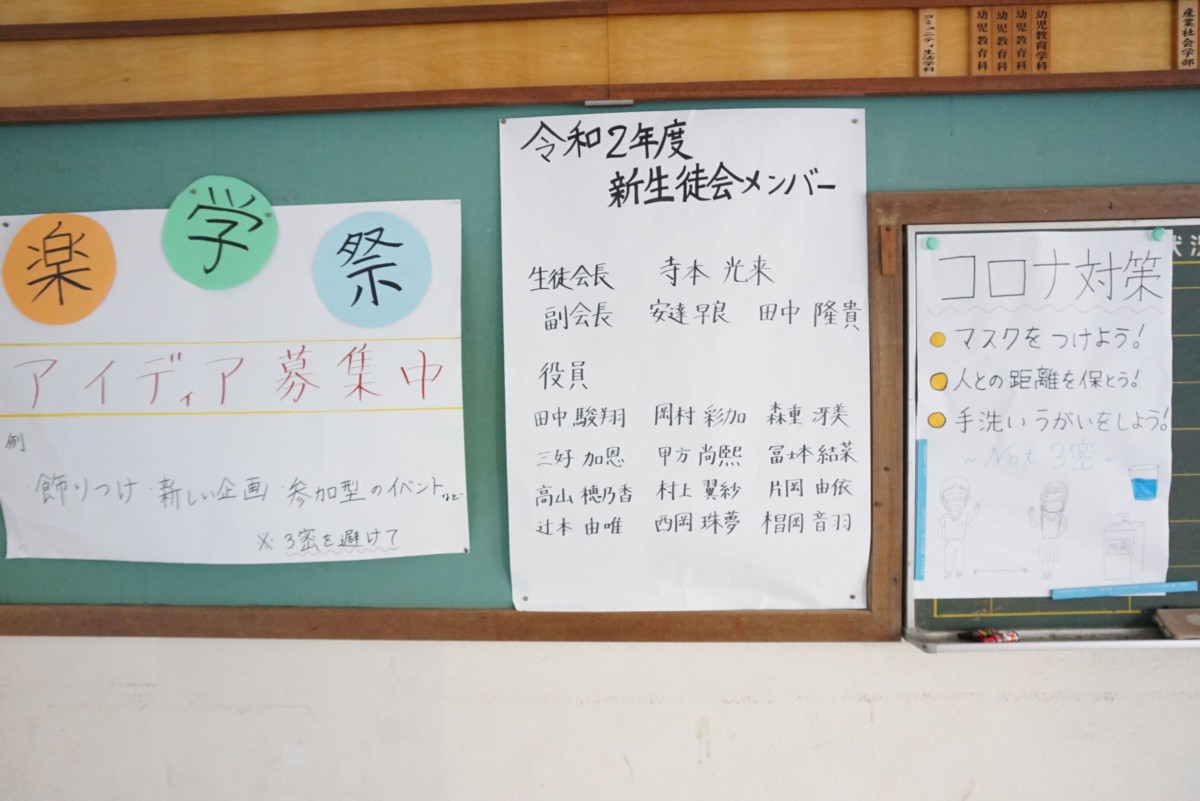 コミュニティ生活学科
幼児教育科
幼児教育科
幼児教育科
幼児教育学科
産業社会学部
楽学祭
アイディア募集中
例
・飾りつけ ・新しい企画 ・参加型のイベントなど
※ 3密を避けて
令和2年度
新生徒会メンバー
生徒会長 寺本 光来
副会長 安達 早良 田中 隆貴
役員
田中 駿翔 岡村 彩加 森重 冴美
三好 加恩 甲方 尚熙 冨士本 結菜
高山 穂乃香 村上 翼紗 片岡 由依
辻本 由唯 西岡 珠夢 椙岡 音羽
状況
コロナ対策
マスクをつけよう!
人との距離を保とう!
手洗いうがいをしよう!
~Not 3密~